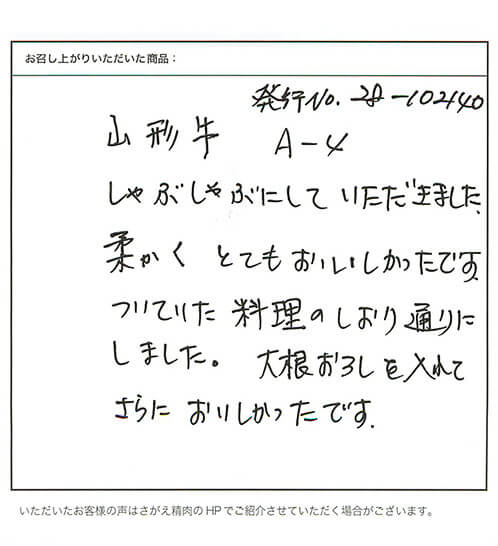 お召し上がりいただいた商品：
発行No. 28-102140
山形牛 A-4
しゃぶしゃぶにしていただきました。
柔かくとてもおいしかったです。
ついていた料理のしおり通りに
しました。大根おろしを入れて
さらにおいしかったです。
いただいたお客様の声はさがえ精肉のHPでご紹介させていただく場合がございます。